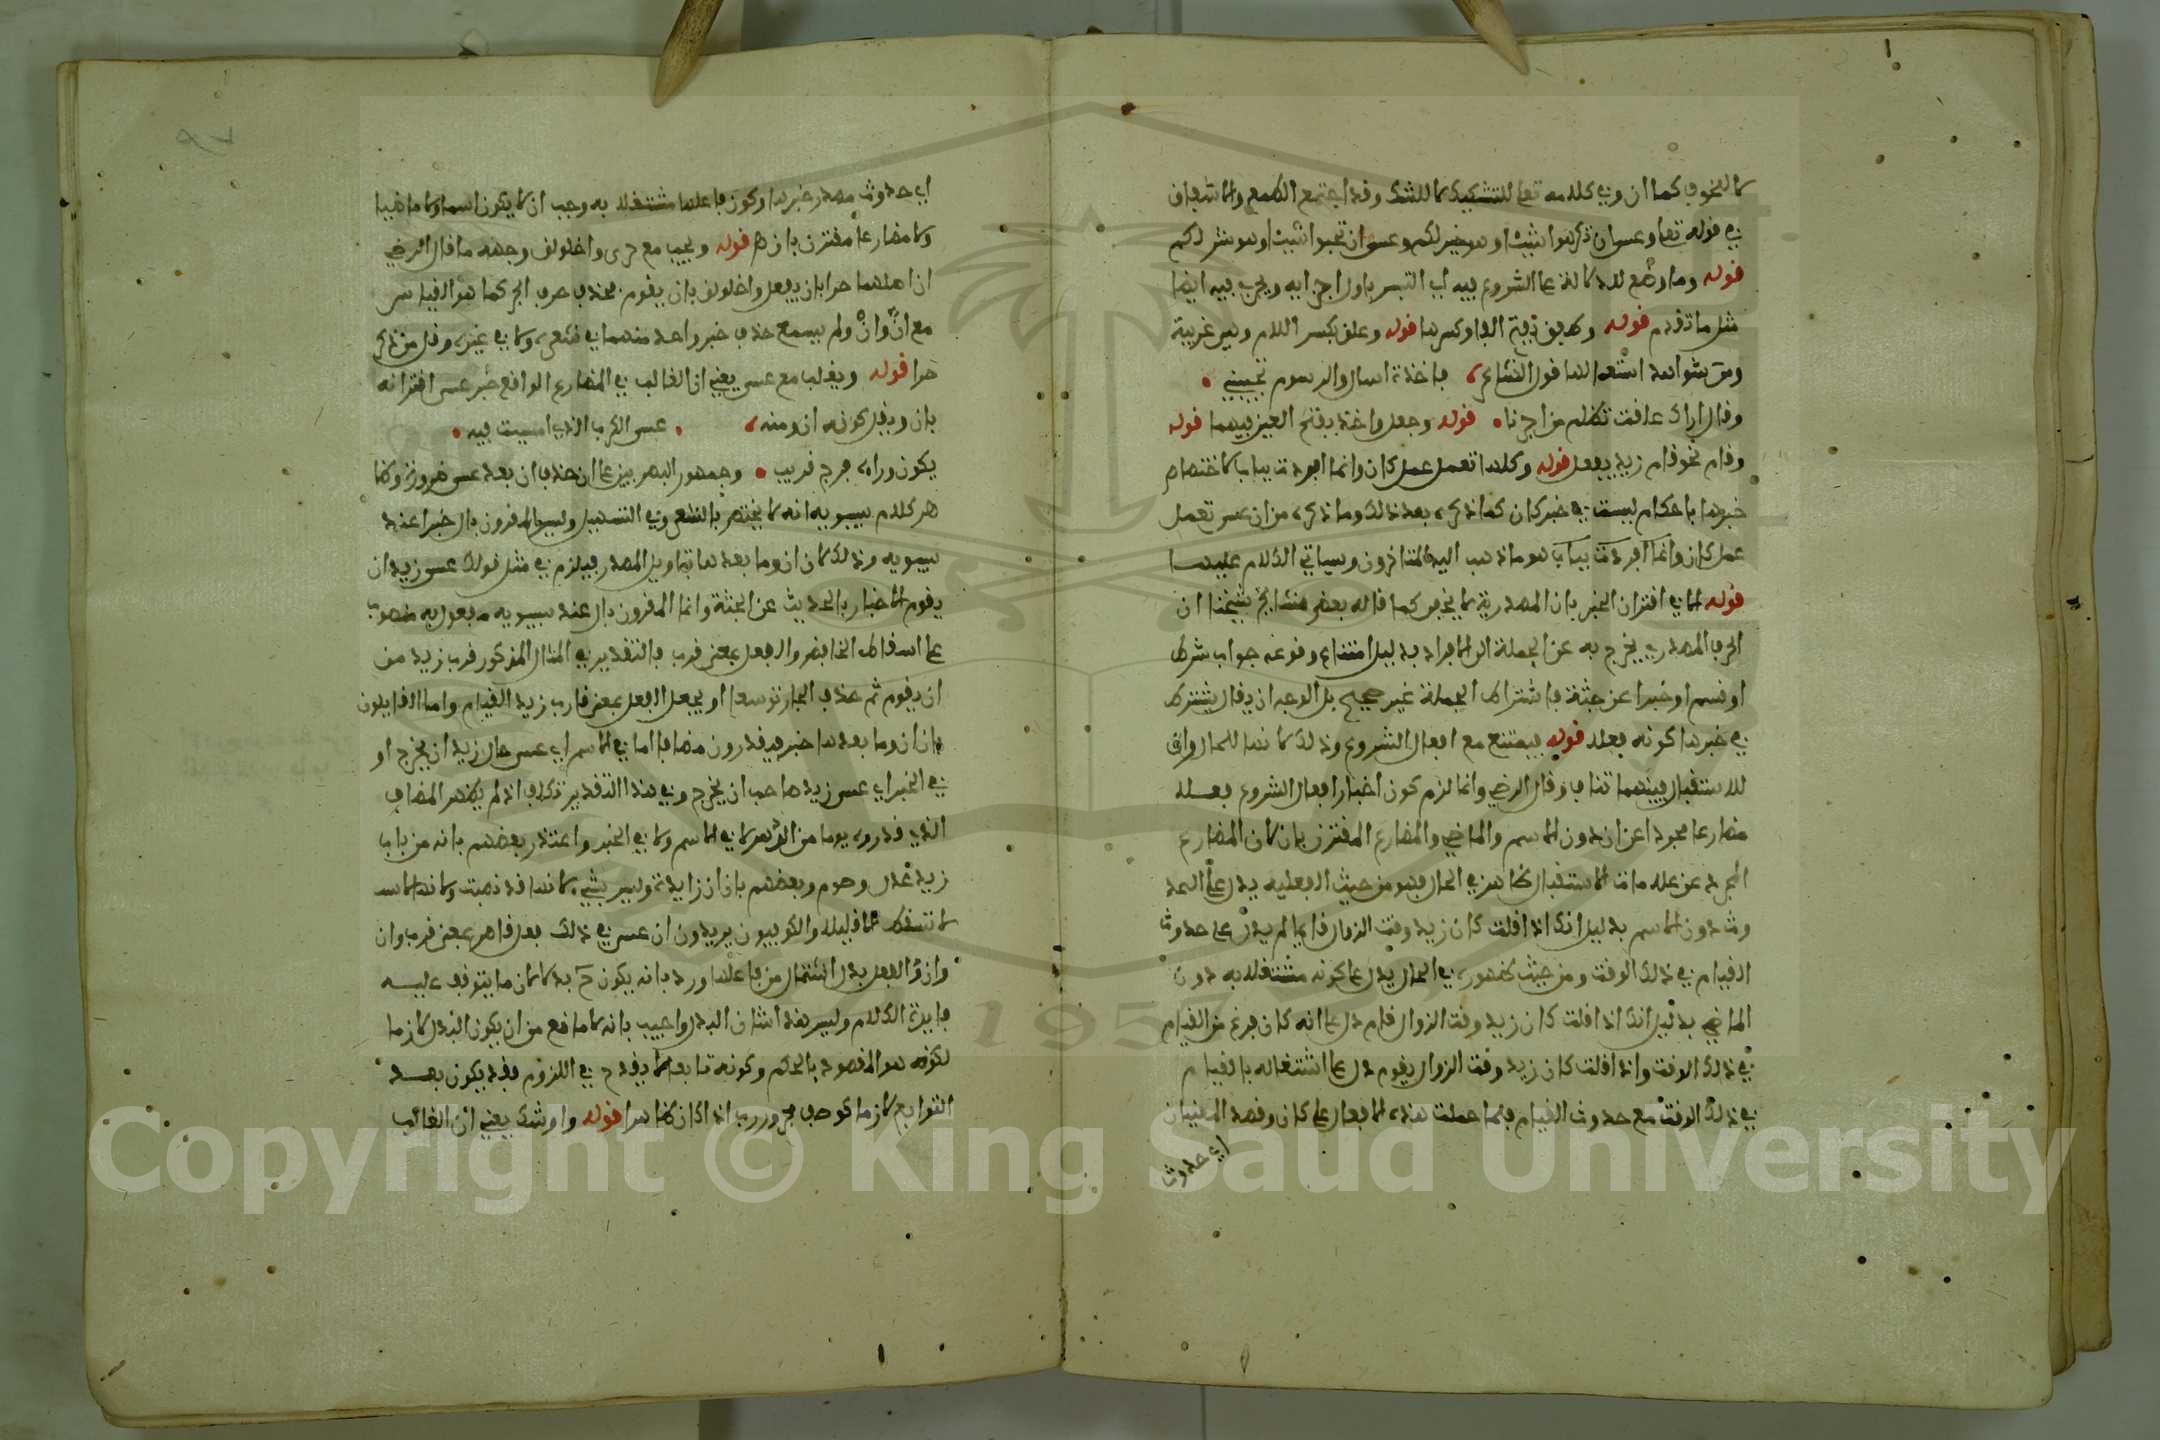 لا للخوف كما ان وفي كلامه تعا للتشكيك لا للشك وقد اجتمع الطمع والاشفاق
في قوله تعا وعسى ان تكرهوا شيئا وهو خير لكم وعسى ان تحبوا شيئا وهو شر لكم
قوله وما وضع للدلالة على الشروع فيه اي التلبس باول اجزائه ويجري فيه ايضا
مثل ما تقدم قوله وطفق بفتح الفا وكسرها قوله وعلق بكسر اللام وهي غريبة
ومن شواهد استعمالها قول الشاعر، فاخذت اسال والرسوم تجيبني •
وقال اراك علقت تظلم من اجرنا • قوله وجعل واخذ بفتح العين فيهما قوله
وقام نحو قام زيد يفعل قوله وكلها تعمل عمل كان وانما افردت بباب لاختصاص
خبرها باحكام ليست في خبر كان كما ذكره بعد ذلك وما ذكره من ان عسى تعمل
عمل كان وانما افردت بباب هو ما ذهب اليه المتاخرون وسياتي الكلام عليها
قوله الثاني اقتران الخبر بان المصدرية لا يخفى كما قاله بعض مشايخ شيخنا ان
الحرف المصدري يخرج به عن الجملة الى الافراد بدليل امتناع وقوعه جواب شرط
او قسم او خبرا عن جثة فاشتراط الجملة غير صحيح بل الوجه ان يقال يشترط
في خبرها كونه فعلا قوله فيمتنع مع افعال الشروع وذلك لانها للحال وان
للاستقبال فبينهما تناف وقال الرضي وانما لزم كون اخبار افعال الشروع فعلا
مضارعا مجردا عن ان دون الاسم والماضي والمضارع المقترن بان لان المضارع
المجرد عن علامات الاستقبال ظاهر في الحال فهو من حيث الفعلية يدل على الحد
وث دون الاسم بدليل انك اذا قلت كان زيد وقت الزوال قائما لم يدل على حدوث
القيام في ذلك الوقت ومن حيث ظهوره في الحال يدل على كونه مشتغلا به دون
الماضي بدليل انك اذا قلت كان زيد وقت الزوال قام دل على انه كان فرغ من القيام
في ذلك الوقت واذا قلت كان زيد وقت الزوال يقوم دل على اشتغاله بالقيام
في ذلك الوقت مع حدوث القيام فلما حملت هذه الافعال على كان وقصد المعنيان
اي حدوث
اي حدوث مصدر خبرها وكون فاعلها مشتغلا به وجب ان لا يكون اسما ولا ماضيا
ولا مضارعا مقترن بان اهـ قوله ويجب مع حرى واخلولق وجهه ما قال الرضي
ان اصلهما حرا بان يفعل واخلولق بان يقوم فحذف حرف الجر كما هو القياس
مع انّ وانْ ولم يسمع حذف خبر واحد منهما في شعر، ولا في غيره وقل من ذكر
حرا قوله ويغلب مع عسى يعني ان الغالب في المضارع الواقع خبر عسى اقترانه
بان ويقل كونه ان ومنه، • عسى الكرب الذي امسيت فيه •
يكون وراءه فرج قريب • وجمهور البصريين على ان حذف ان بعد عسى ضرورة وظا
هر كلام سيبويه انه لا يختص بالشعر وفي التسهيل وليس المقرون بان خبرا عند
سيبويه وذلك لان ان وما بعدها بتاويل المصدر فيلزم في مثل قولك عسى زيد ان
يقوم الاخبار بالحديث عن الجثة وانما المقرون بان عند سيبويه مفعول به منصوب
على اسقاط الخافض والفعل بمعنى قرب فالتقدير في المثال المذكور قرب زيد من
ان يقوم ثم حذف الجار توسعا او يجعل الفعل بمعنى قارب زيد القيام واما القايلون
بان ان وما بعدها خبر فيقدرون مضافا اما في الاسم اي عسى حال زيد ان يخرج او
في الخبر اي عسى زيد صاحب ان يخرج وفي هذا التقدير تكلف اذ لم يظهر المضاف
الذي قدروه يوما من الدهر لا في الاسم ولا في الخبر واعتذر بعضهم بانه من باب
زيد عدل وصوم وبعضهم بان ان زايدة وليس بشيء لانها قد نصبت ولانها
لا تسقط الا قليلا والكوفيون يريدون ان عسى في ذلك فعل قاصر بمعنى قرب وان
وان والفعل بدل اشتمال من فاعلها ورد بانه يكون ح بدلا لازما يتوقف عليه
فايدة الكلام وليس هذا شان البدل واجيب بانه لا مانع من ان يكون البدل لازما
لكونه هو المقصود بالحكم وكونه تابعا لا يقدح في اللزوم فقد يكون بعض
التوابع لازما كوصف مجرور رب اذا كان ظاهرا قوله واوشك يعني ان الغالب
Copyright © King Saud University
1957